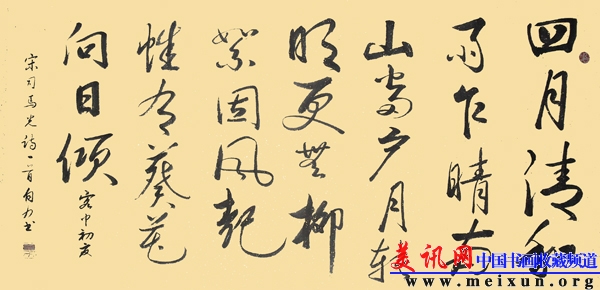 四月清和
雨乍晴南
山當户轉
明更無柳
絮因风起
惟有葵花
向日倾
客中初夏
宋司马光诗一首自力书
美讯网 中国书画收藏频道
www.meixun.org